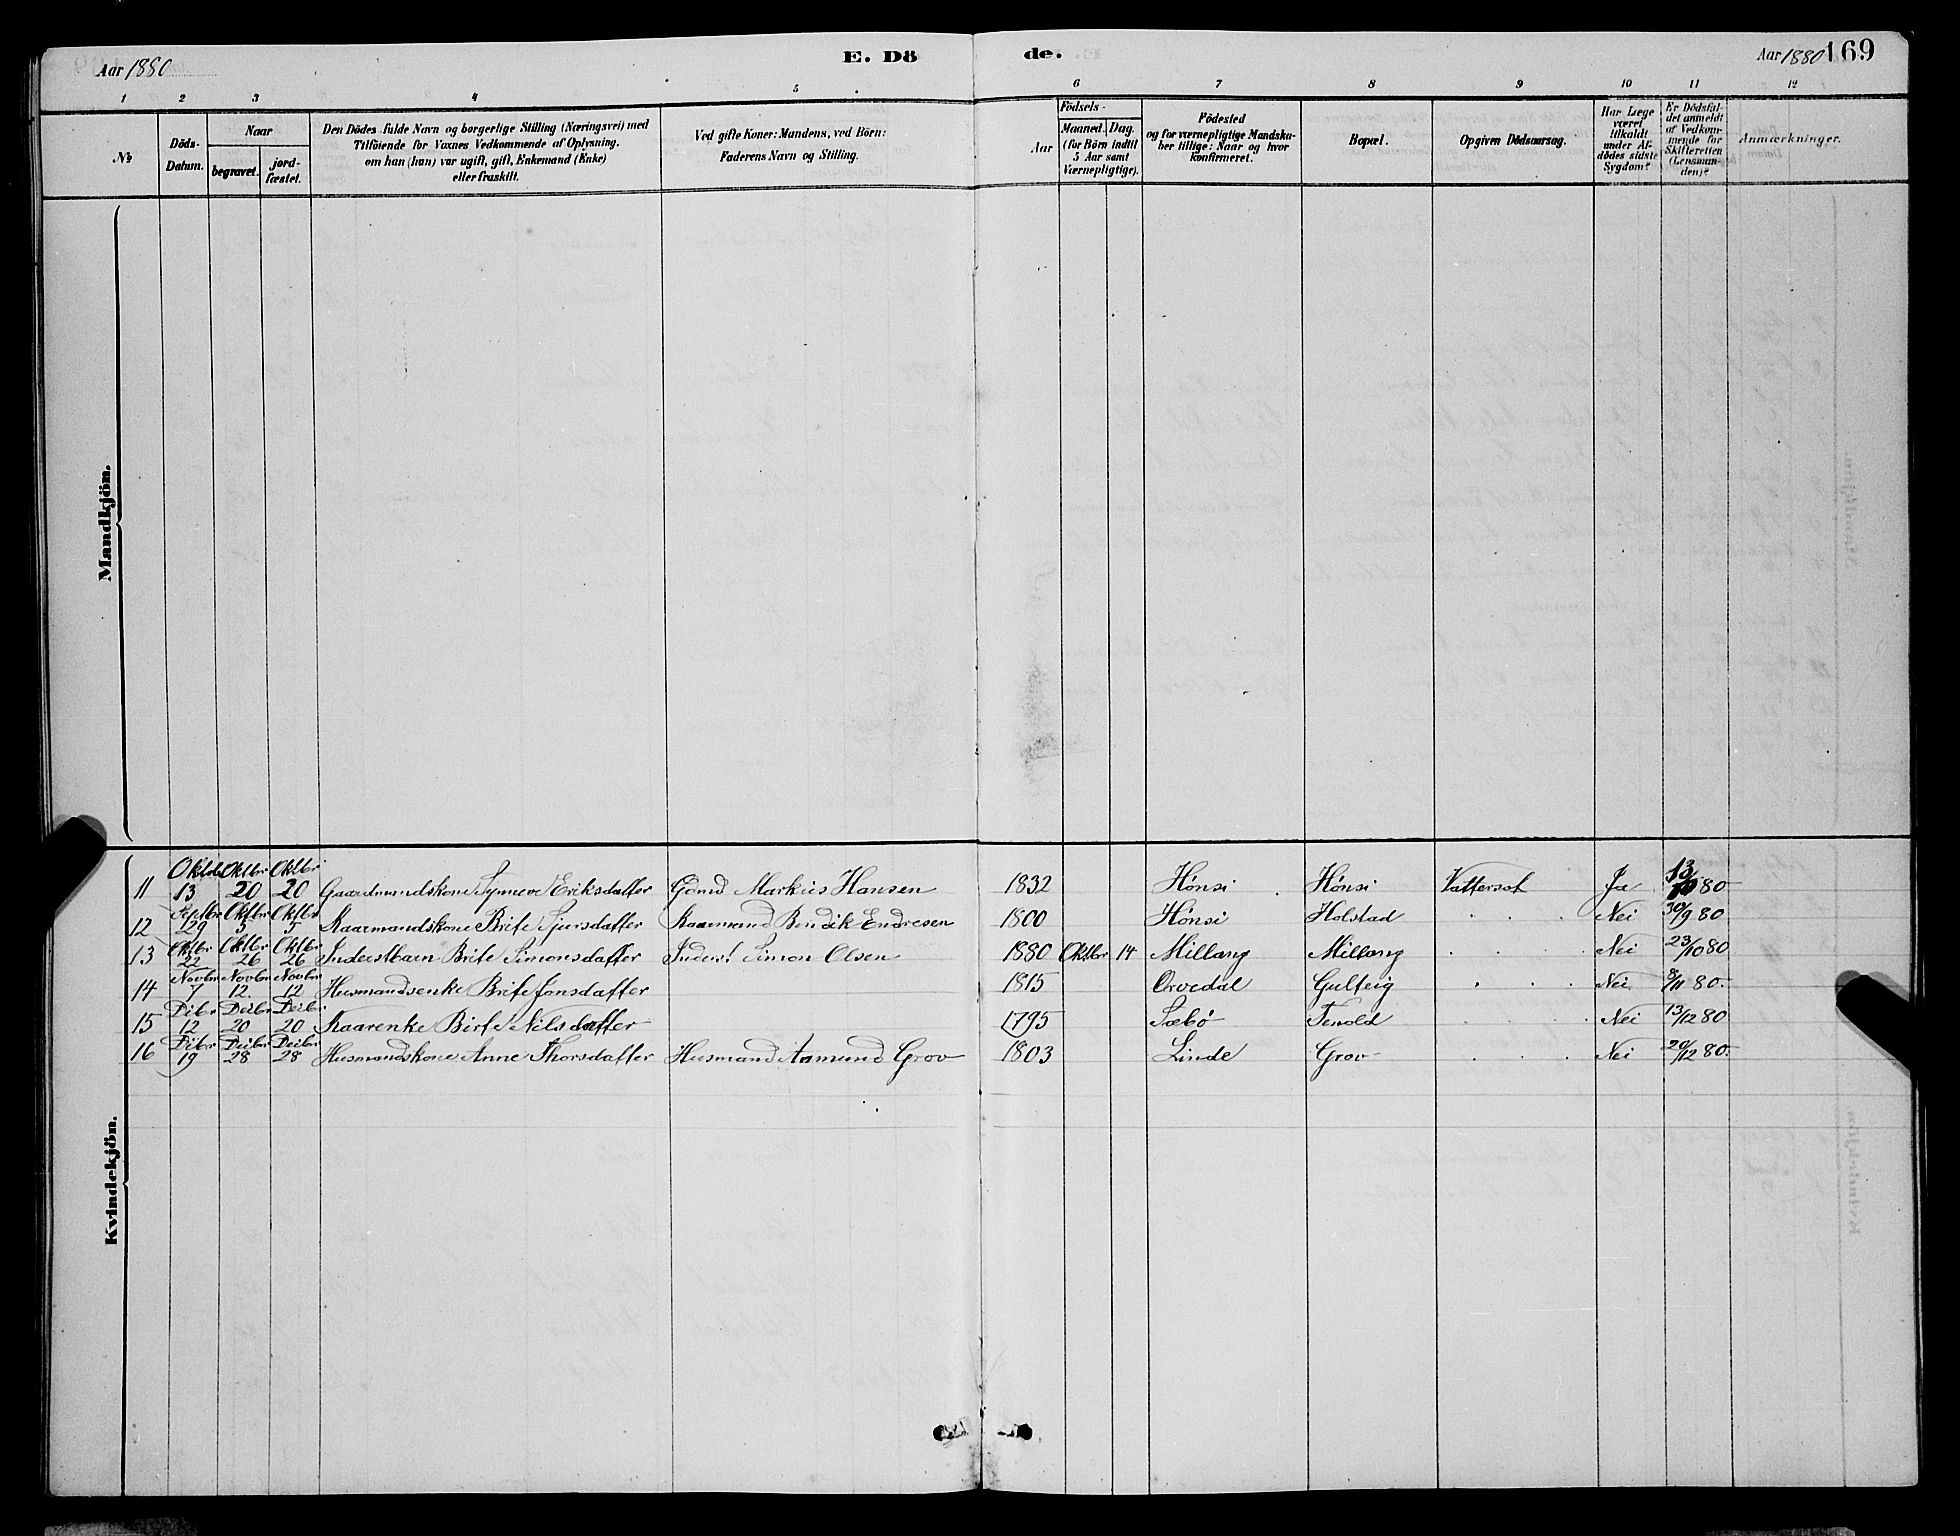 Aar 1880
E. Dö
de.
Aar 1880
169
1 2 3 4 5 6 7 8 9 10 11 12
No
Döds-
Datum.
Naar
begravet.
jord-
fæstet.
Den Dödes fulde Navn og borgerlige Stilling (Næringsvei) med
Tilföiende for Voxnes Vedkommende af Oplysning,
om han (hun) var ugift, gift, Enkemand (Enke)
eller fraskilt.
Ved gifte Koner: Mandens, ved Börn:
Faderens Navn og Stilling.
Födsels-
Aar
Maaned. Dag.
(for Börn indtil
5 Aar samt
Værnepligtige).
Födested
og for værnepligtige Mandska-
ber tillige: Naar og hvor
konfirmeret.
Bopæl.
Opgiven Dödsaarsag.
Har Læge
været
tilkaldt
under Af-
dödes sidste
Sygdom?
Er Dödsfal-
det anmeldt
af Vedkom-
mende for
Skifteretten
(Lensman-
den)?
Anmærkninger.
Mandkjön.
Kvindekjön.
11 Oktbr 13 Oktbr 20 Oktbr 20 Gaardmandskone Synneve Eriksdatter Gdmd Markus Hansen 1832 Hønsi Hønsi Vattersot Ja 13/10 80
12 Septbr 29 Oktbr 5 Oktbr 5 Kaarmandskone Brite Sjursdatter Kaarmand Bendik Endresen 1800 Hønsi Holstad Nei 30/9 80
13 Oktbr 22 Oktbr 26 Oktbr 26 Inderstbarn Brite Simonsdatter Inderst Simon Olsen 1880 Oktbr 14 Millang Millang Nei 23/10 80
14 Novbr 7 Novbr 12 Novbr 12 Husmandsenke Brite Jonsdatter 1815 Orvedal Gulteig Nei 8/11 80.
15 Dcbr 12 Dcbr 20 Dcbr 20 Kaarenke Birte Nilsdatter 1795 Sæbø Tenold Nei 13/12 80
16 Dcbr 19 Dcbr 28 Dcbr 28 Husmandskone Anne Thorsdatter Husmand Aamund Grov 1803 Linde Grov Nei 20/12 80.